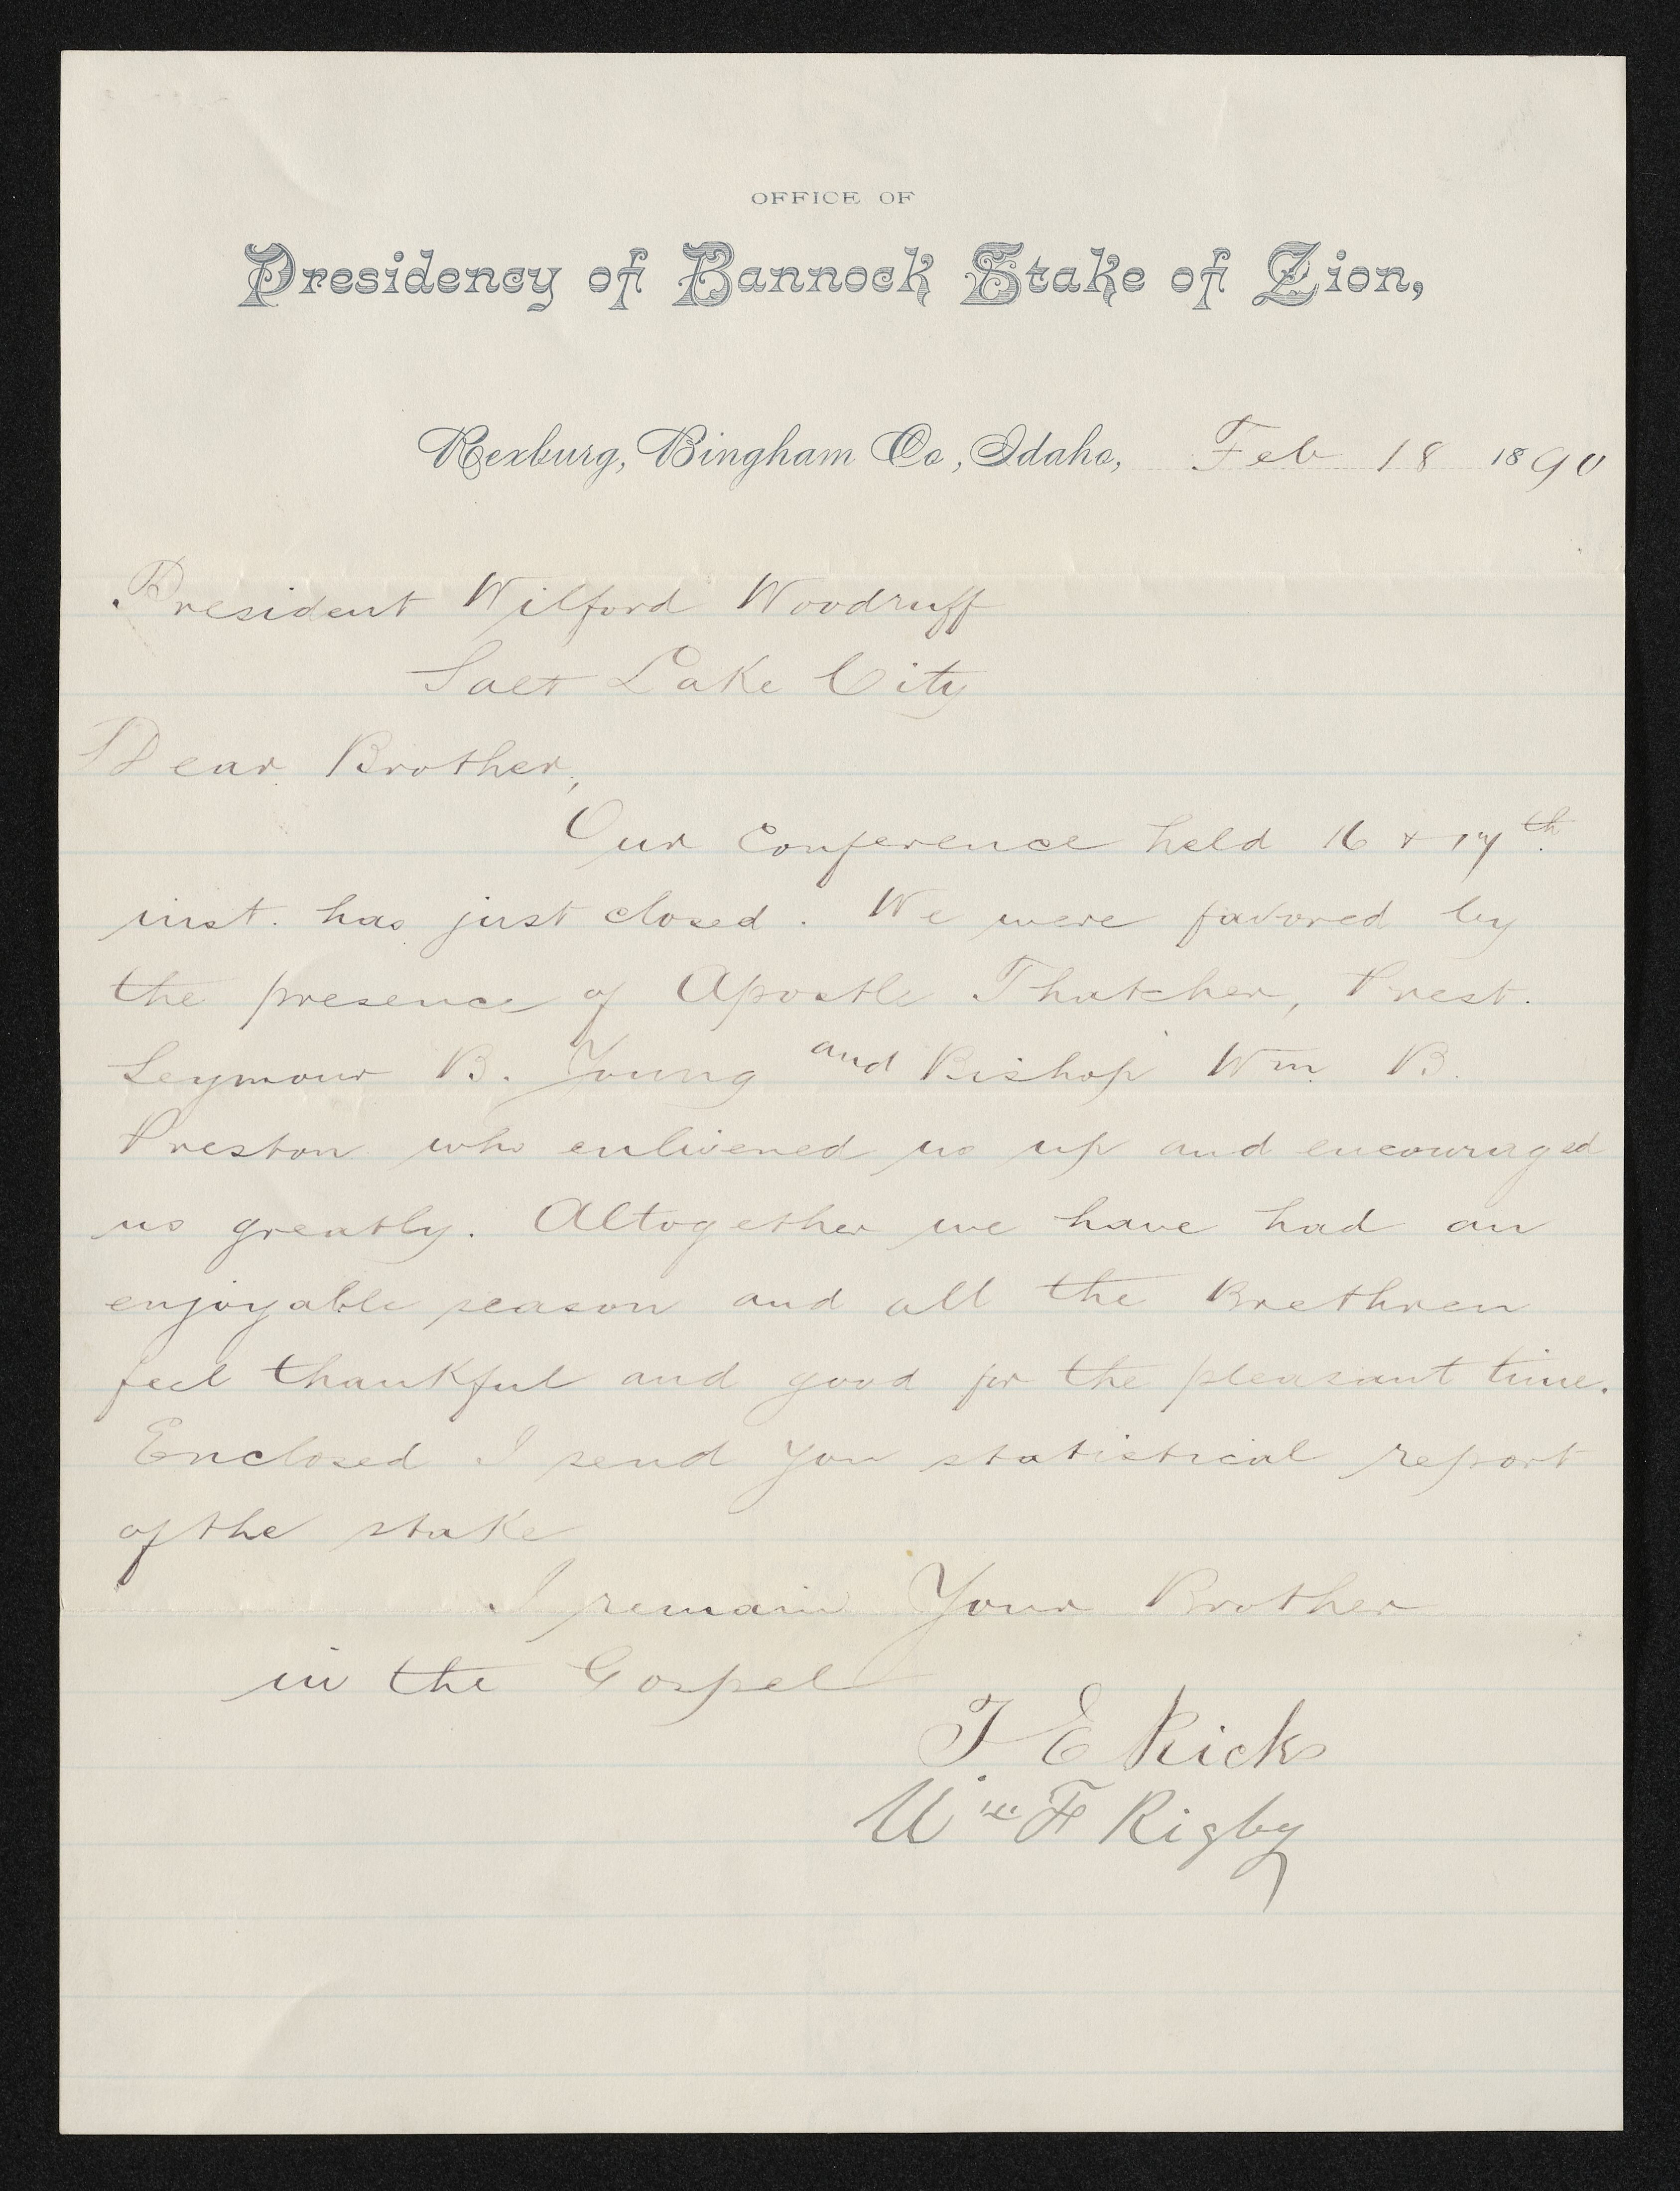 OFFICE OF
Presidency of Bannock Stake of Zion,
Rexburg, Bingham Co, Idaho, Feb 18 1890
President Wilford Woodruff
Salt Lake City
Dear Brother,
Our Conference held 16 & 17th
inst. has just closed. We were favored by
the presence of Apostle Thatcher, Prest.
Seymour B. Young and Bishop Wm B.
Preston who enlivened us up and encouraged
us greatly. Altogether we have had an
enjoyable season and all the Brethren
feel thankful and good for the pleasant time.
Enclosed I send you statistical report
of the stake
I remain Your Brother
in the Gospel
T. E. Ricks
Wm F Rigby